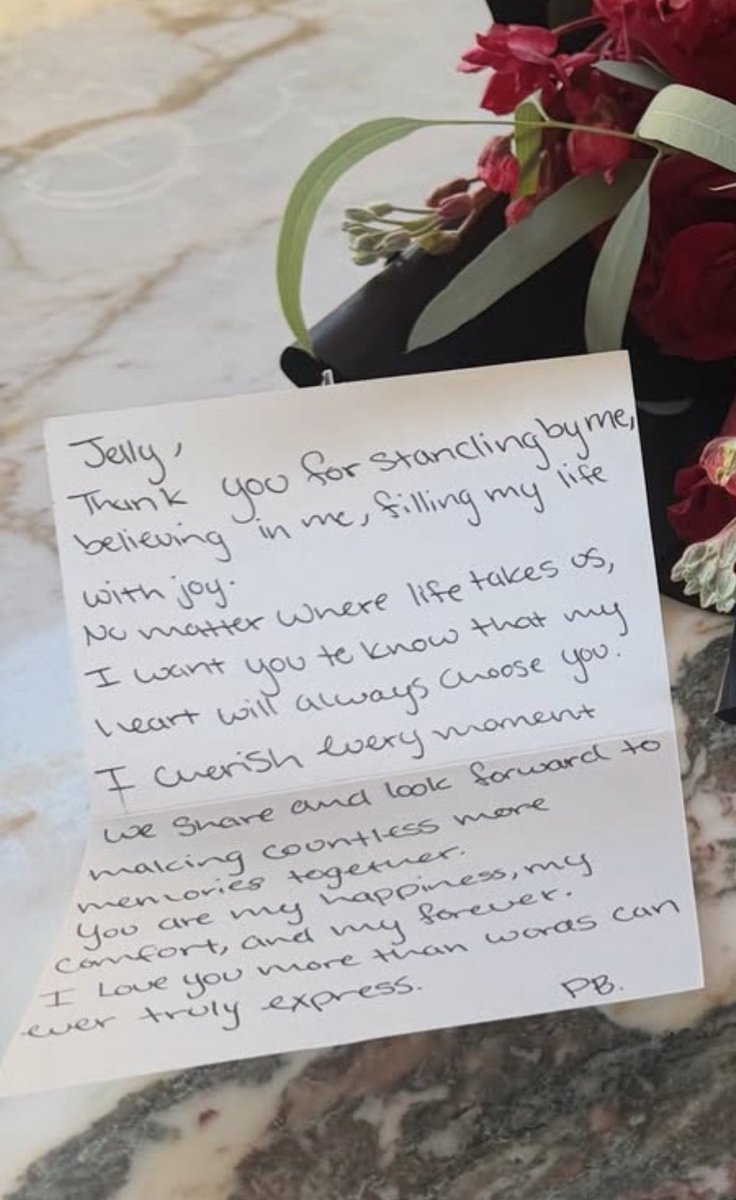 Jelly,
Thank you for standing by me,
believing in me, filling my life
with joy.
No matter where life takes us,
I want you to know that my
heart will always choose you.
I cherish every moment
we share and look forward to
making countless more
memories together.
You are my happiness, my
comfort, and my forever.
I Love you more than words can
ever truly express.
PB.